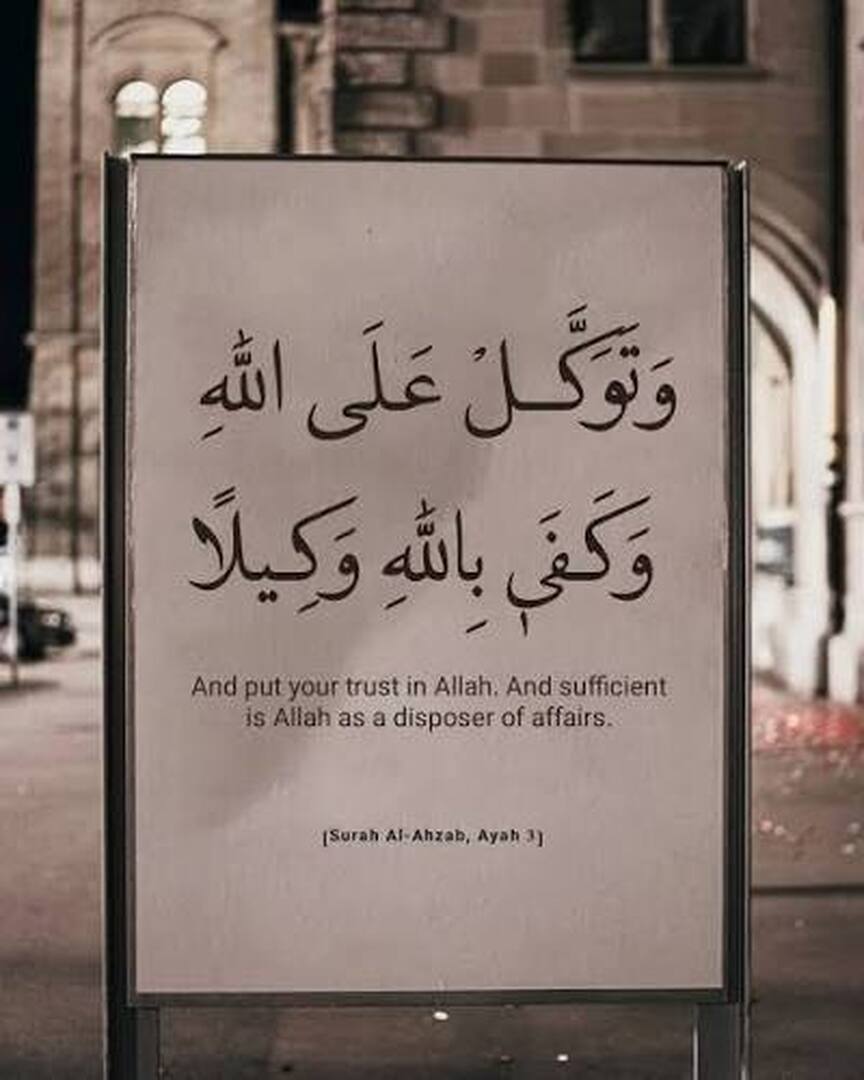 وَتَوَكَّلْ عَلَى اللهِ
وَكَفَىٰ بِاللهِ وَكِيلًا
And put your trust in Allah. And sufficient
is Allah as a disposer of affairs.
[Surah Al-Ahzab, Ayah 3]